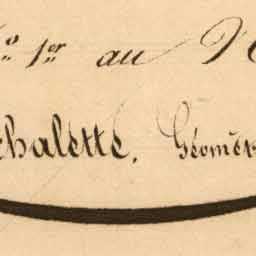 o 1er au N
chalette, Géomèt